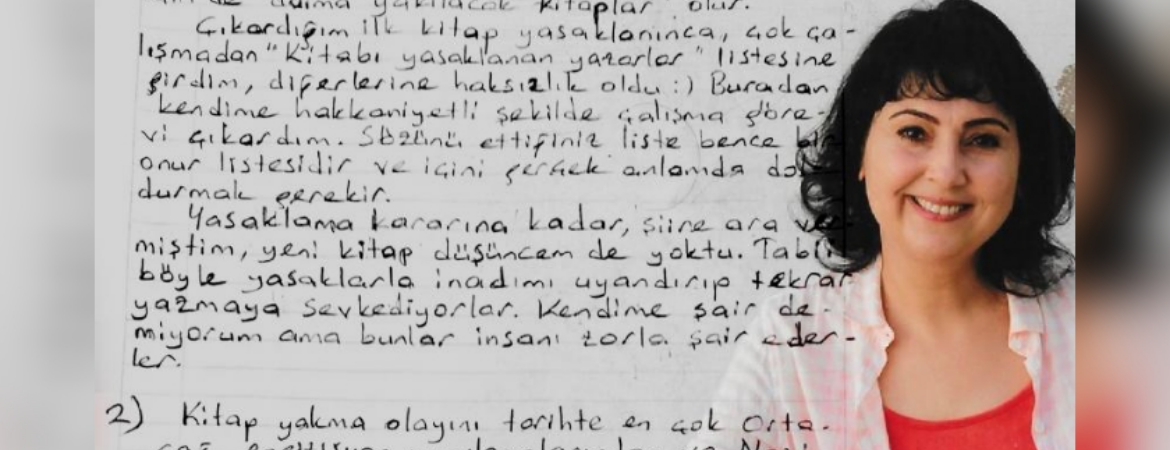 daima yakılacak kitaplar olur.
Çıkardığım ilk kitap yasaklanınca, çok ça-
lışmadan "Kitabı yasaklanan yazarlar" listesine
girdim, diğerlerine haksızlık oldu :) Buradan
kendime hakkaniyetli şekilde çalışma göre-
vi çıkardım. Sözünü ettiğiniz liste bence bir
onur listesidir ve içini gerçek anlamda dol-
durmak gerekir.
Yasaklama kararına kadar, şiire ara ver-
miştim, yeni kitap düşüncem de yoktu. Tabii
böyle yasaklarla inadımı uyandırıp tekrar
yazmaya sevkediyorlar. Kendime şair de-
miyorum ama bunlar insanı zorla şair eder-
ler.
2) Kitap yakma olayını tarihte en çok Orta-